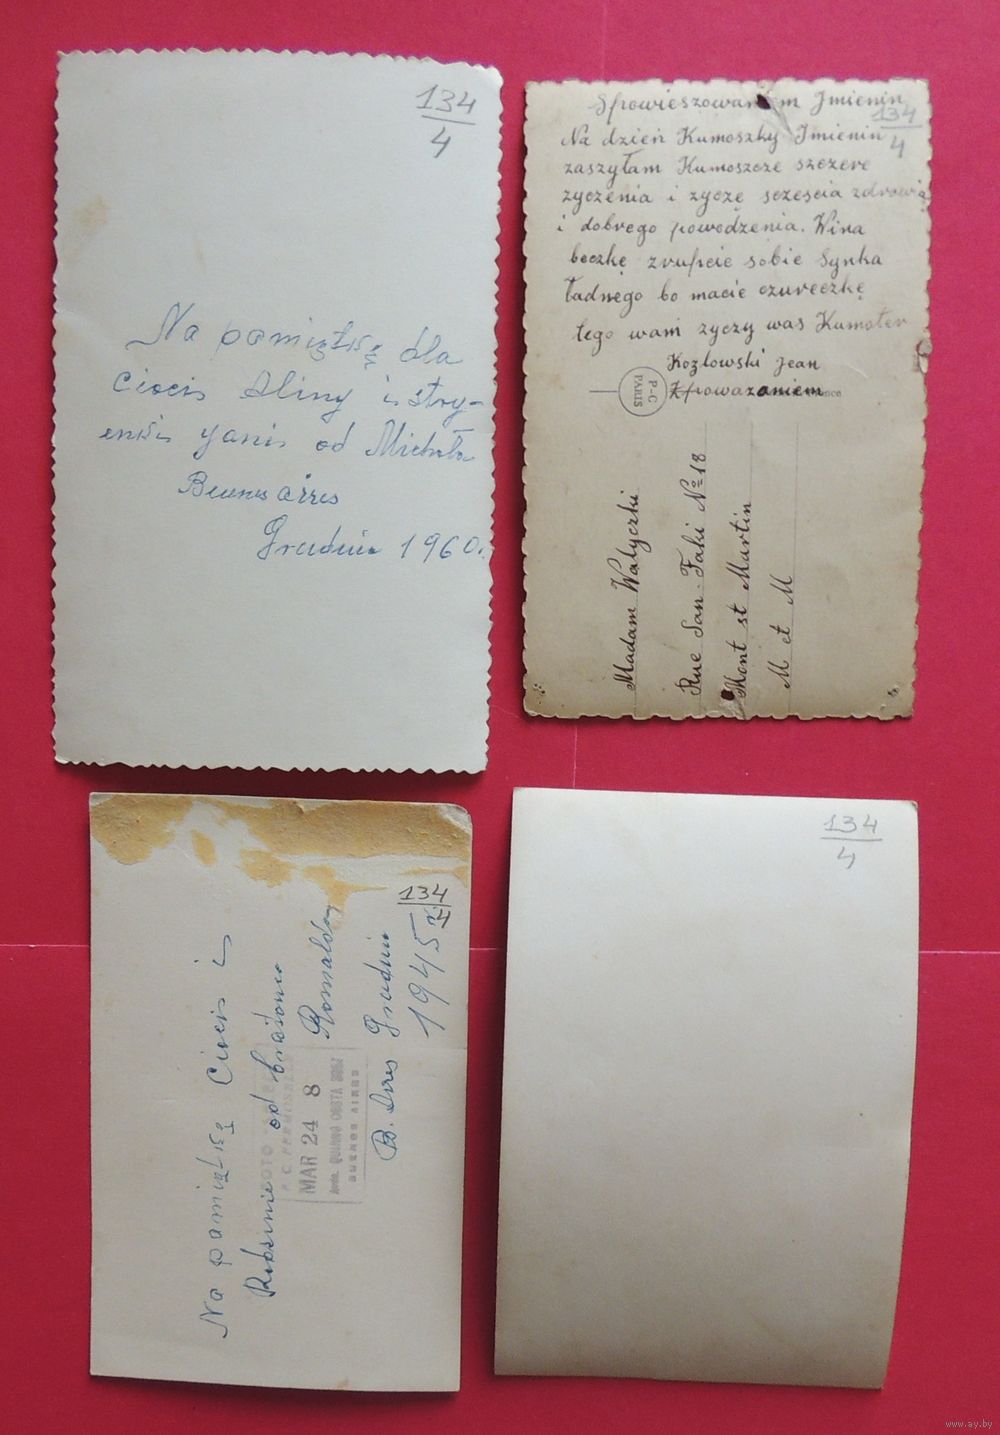 134
4
Na pamiątkę dla
Cioci Aliny i stry-
enki Yani od Michała
Buenos Aires
Grudnia 1960r.
Spowieszowaniem Jmienin
134
4
Na dzień Kumoszky Jmienin
zaszyłam Kumoszcze szczere
zyczenia i zyczę sczescia zdrowia
i dobrego powodzenia. Wina
beczkę zrupcie sobie Synka
ładnego bo macie czureczkę
tego wam zyczy was Kumoter
Kozłowski Jean
Zpowazaniem
P-C
PARIS
Madam Wałyczki
Rue San-Faki № 18
Mont st Martin
M et M
134
4
Na pamiątkę Cioci i
Rodzinie od bratowa
Romaldy
B. Aires Grudnia
1945 r
MAR 24 8
BUENOS AIRES
134
4
www.ay.by